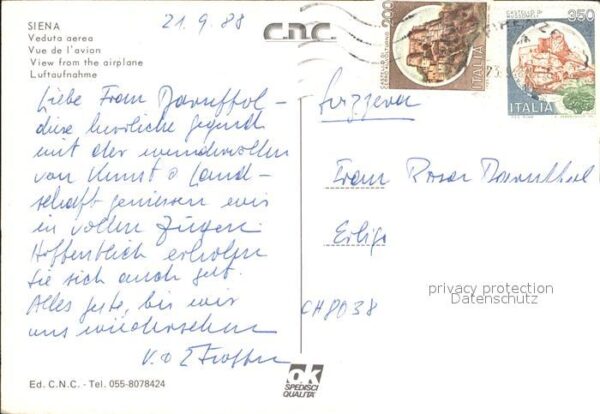 21.9.88
SIENA
Veduta aerea
Vue de l'avion
View from the airplane
Luftaufnahme
C.N.C.
200
CASTELLO DI
ITALIA
CASTELLO DI
MUSSOMELI
350
ITALIA
Liebe Frau
diese herrliche Gegend
mit der wundervollen
von Kunst & Land-
schaft geniessen wir
in vollen Zügen.
Hoffentlich erholen
Sie sich auch gut.
Alles gute, bis wir
uns wiedersehen
V. & E
Svizzera
Frau Rosa
CH 8038
privacy protection
Datenschutz
Ed. C.N.C. - Tel. 055-8078424
ok
SPEDISCI
QUALITA'